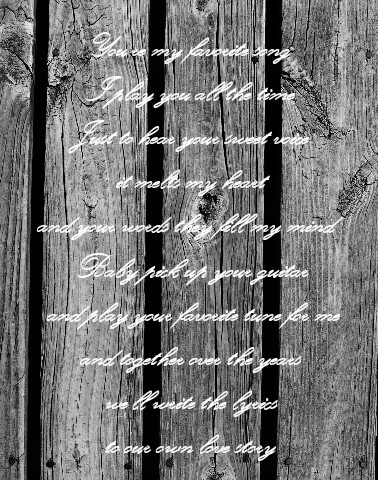 You're my favorite song
I play you all the time
Just to hear your sweet voice
it melts my heart
and your words they fill my mind
Baby pick up your guitar
and play your favorite tune for me
and together over the years
we'll write the lyrics
to our own love story